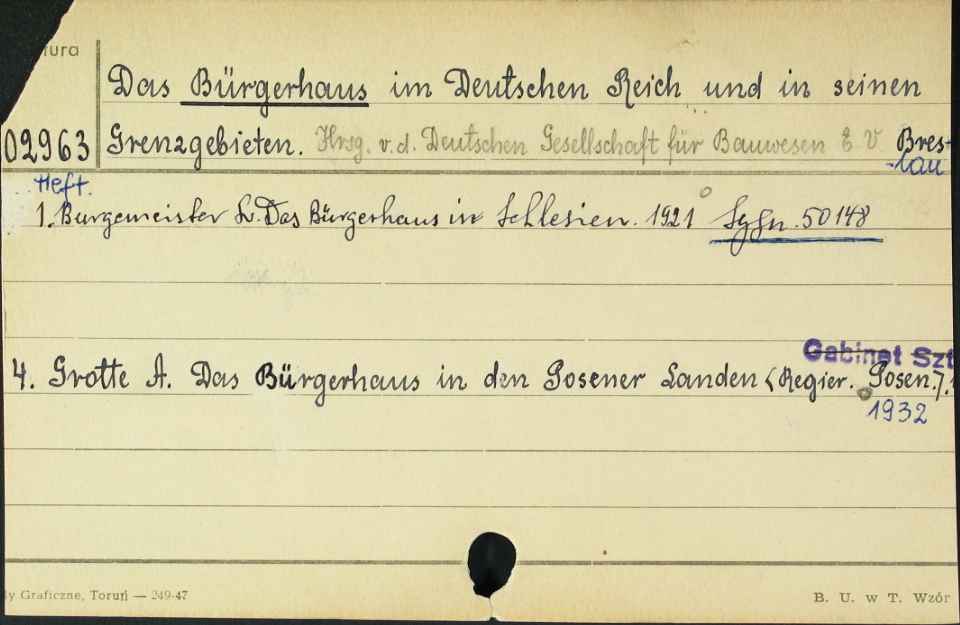 tura
Das Bürgerhaus im Deutschen Reich und in seinen
02963 Grenzgebieten. Hrsg. v. d. Deutschen Gesellschaft für Bauwesen E. V. Bres-
lau
Heft.
1. Burgemeister L. Das Bürgerhaus in Schlesien. 1921 Sygn. 50148
Gabinet Szt
4. Grotte A. Das Bürgerhaus in den Posener Landen (Regier. Posen.).
1932
y Graficzne, Toruń — 249-47
B. U. w T. Wzór